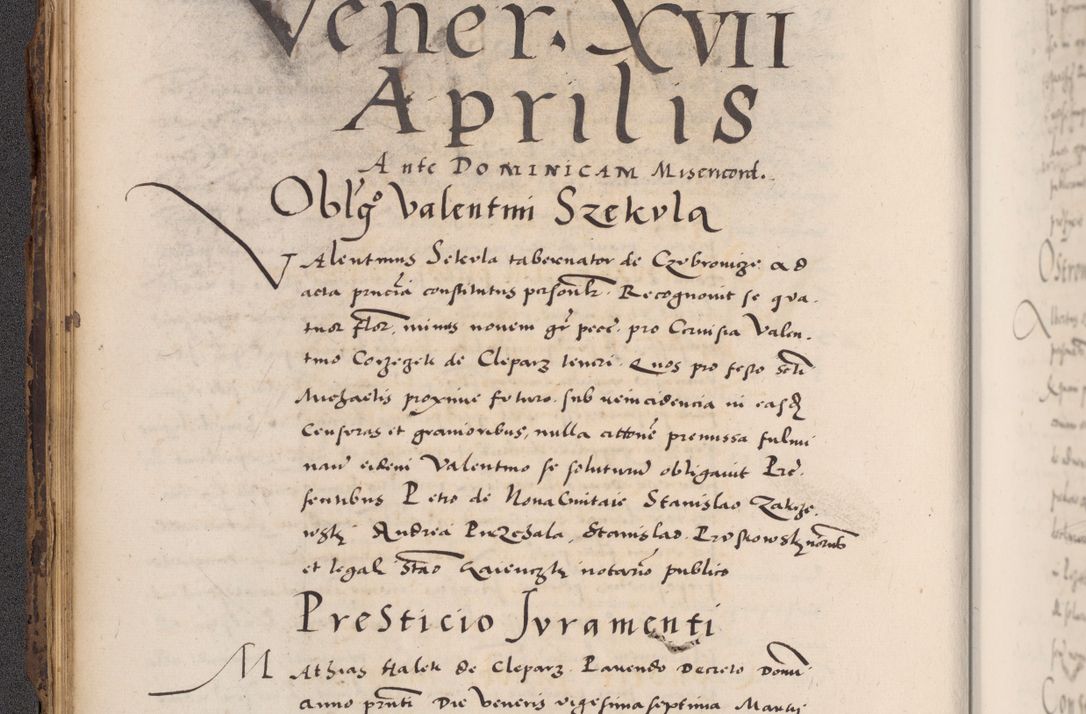 Vener. XVII
Aprilis
Ante Dominicam Misericord.
Oblgo Valentini Szekvla
Valentinus Sekvla tabernator de Czvbrowicze ad
acta pñcia constitutus personlr. Recognovit se qua.
tuor flor. minus novem gr pecc. pro Cervisia Valen.
tino de Cleparz teneri. Quos pro festo scti
Michaelis proxime futuro. sub reincidencia in easd
Censuras et graviores, nulla premissa fulmi
eidem Valentino se soluturum obligavit Pre.
sentibus Petro de Nova Civitate Stanislao Zakrze.
wsky Andrea Przechala, Stanislao
et legal Stao notario publico
Presticio Jvramenti
Mathias Halek de Cleparz. Parendo Decreto Domi
anno pñti Die Veneris vigesima septima Marcii